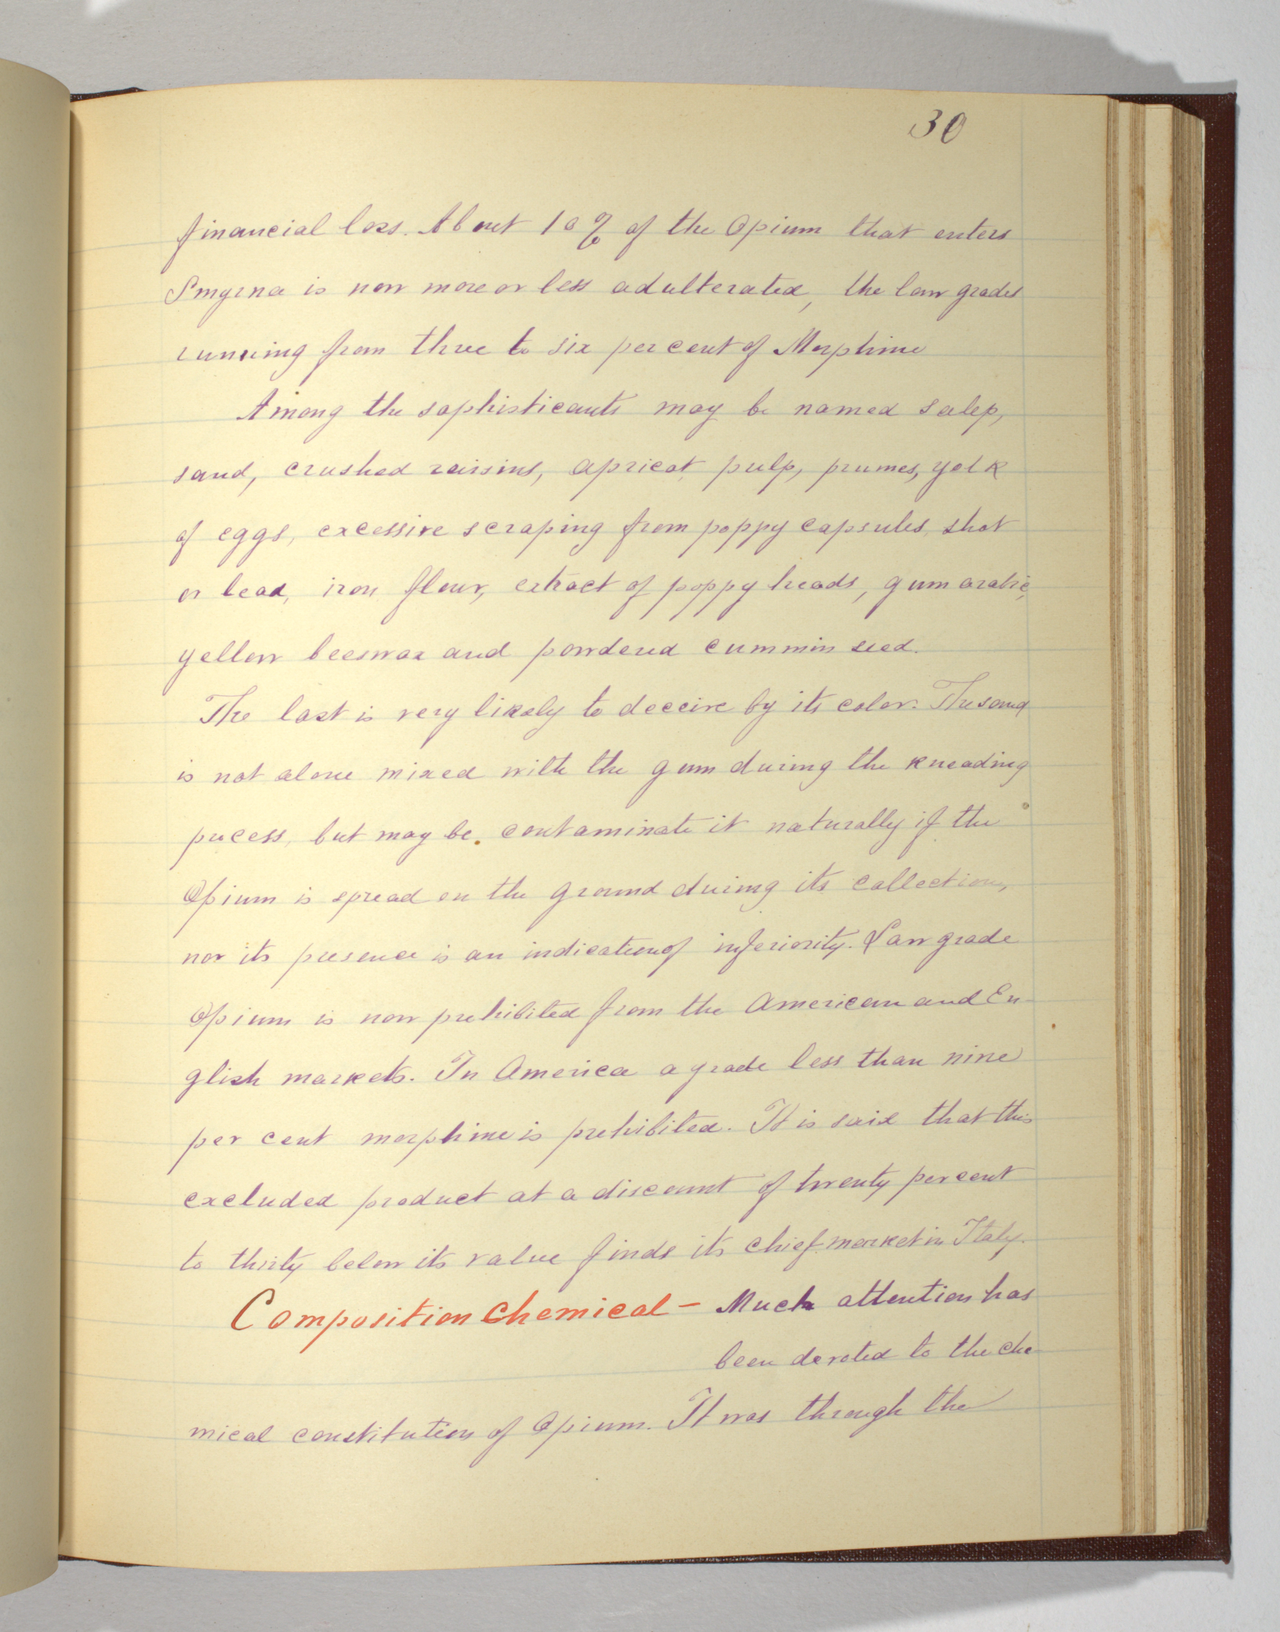 30
financial loss. About 10% of the Opium that enters
Smyrna is now more or less adulterated, the low grades
running from three to six per cent of Morphine
Among the sophisticants may be named salep,
sand, crushed raisins, apricot pulp, prunes, yolk
of eggs, excessive scraping from poppy capsules, shot
or lead, iron flour, extract of poppy heads, gum arabic,
yellow beeswax and powdered cummin seed.
The last is very likely to deceive by its color. The sand
is not alone mixed with the gum during the kneading
process, but may be contaminate it naturally if the
Opium is spread on the ground during its collection,
nor its presence is an indication of inferiority. Low grade
Opium is now prohibited from the American and En-
glish markets. In America a grade less than nine
per cent morphine is prohibited. It is said that this
excluded product at a discount of twenty per cent
to thirty below its value finds its chief market in Italy.
Composition Chemical - Much attention has
been devoted to the che
mical constitution of Opium. It was through the